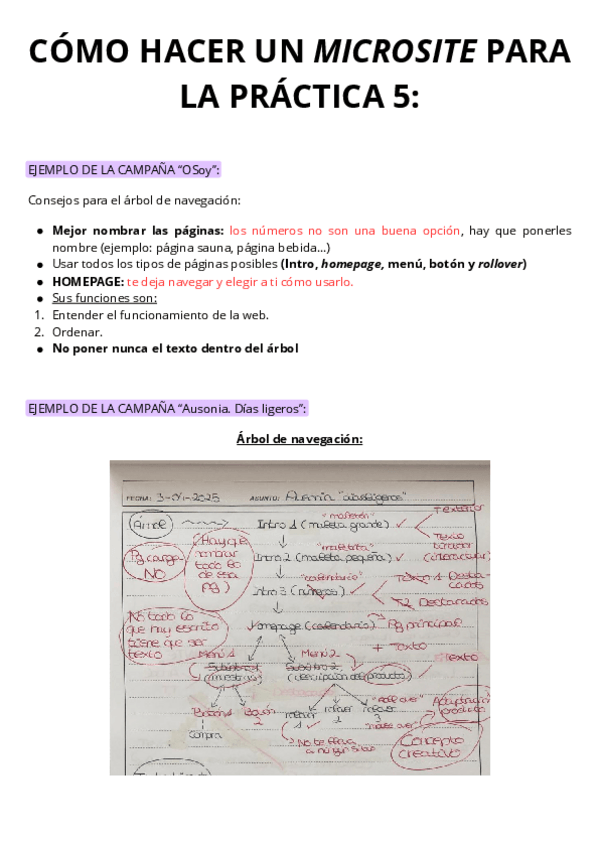 CÓMO HACER UN MICROSITE PARA
LA PRÁCTICA 5:
EJEMPLO DE LA CAMPAÑA “OSoy”:
Consejos para el árbol de navegación:
● Mejor nombrar las páginas: los números no son una buena opción, hay que ponerles
nombre (ejemplo: página sauna, página bebida...)
● Usar todos los tipos de páginas posibles (Intro, homepage, menú, botón y rollover)
● HOMEPAGE: te deja navegar y elegir a ti cómo usarlo.
● Sus funciones son:
1. Entender el funcionamiento de la web.
2. Ordenar.
● No poner nunca el texto dentro del árbol
EJEMPLO DE LA CAMPAÑA “Ausonia. Días ligeros”:
Árbol de navegación:
FECHA: 3-01-2025 ASUNTO: Ausonia
Intro 1 (maleta grande)
Texto
Pg carga NO
Hay que nombrar todo lo de esa pg)
Intro 2 (maleta pequeña)
"calendario"
Intro 3 (números)
Destacados
T2 Destacados
No todo lo que hay escrito tiene que ser texto
Homepage (calendario) Pg principal
+ Texto
Menú 1 Menú 2
Texto
(descripción del producto)
Botón 1 Botón 2
1 3
Compra
No te lleva a ningún sitio
Concepto creativo